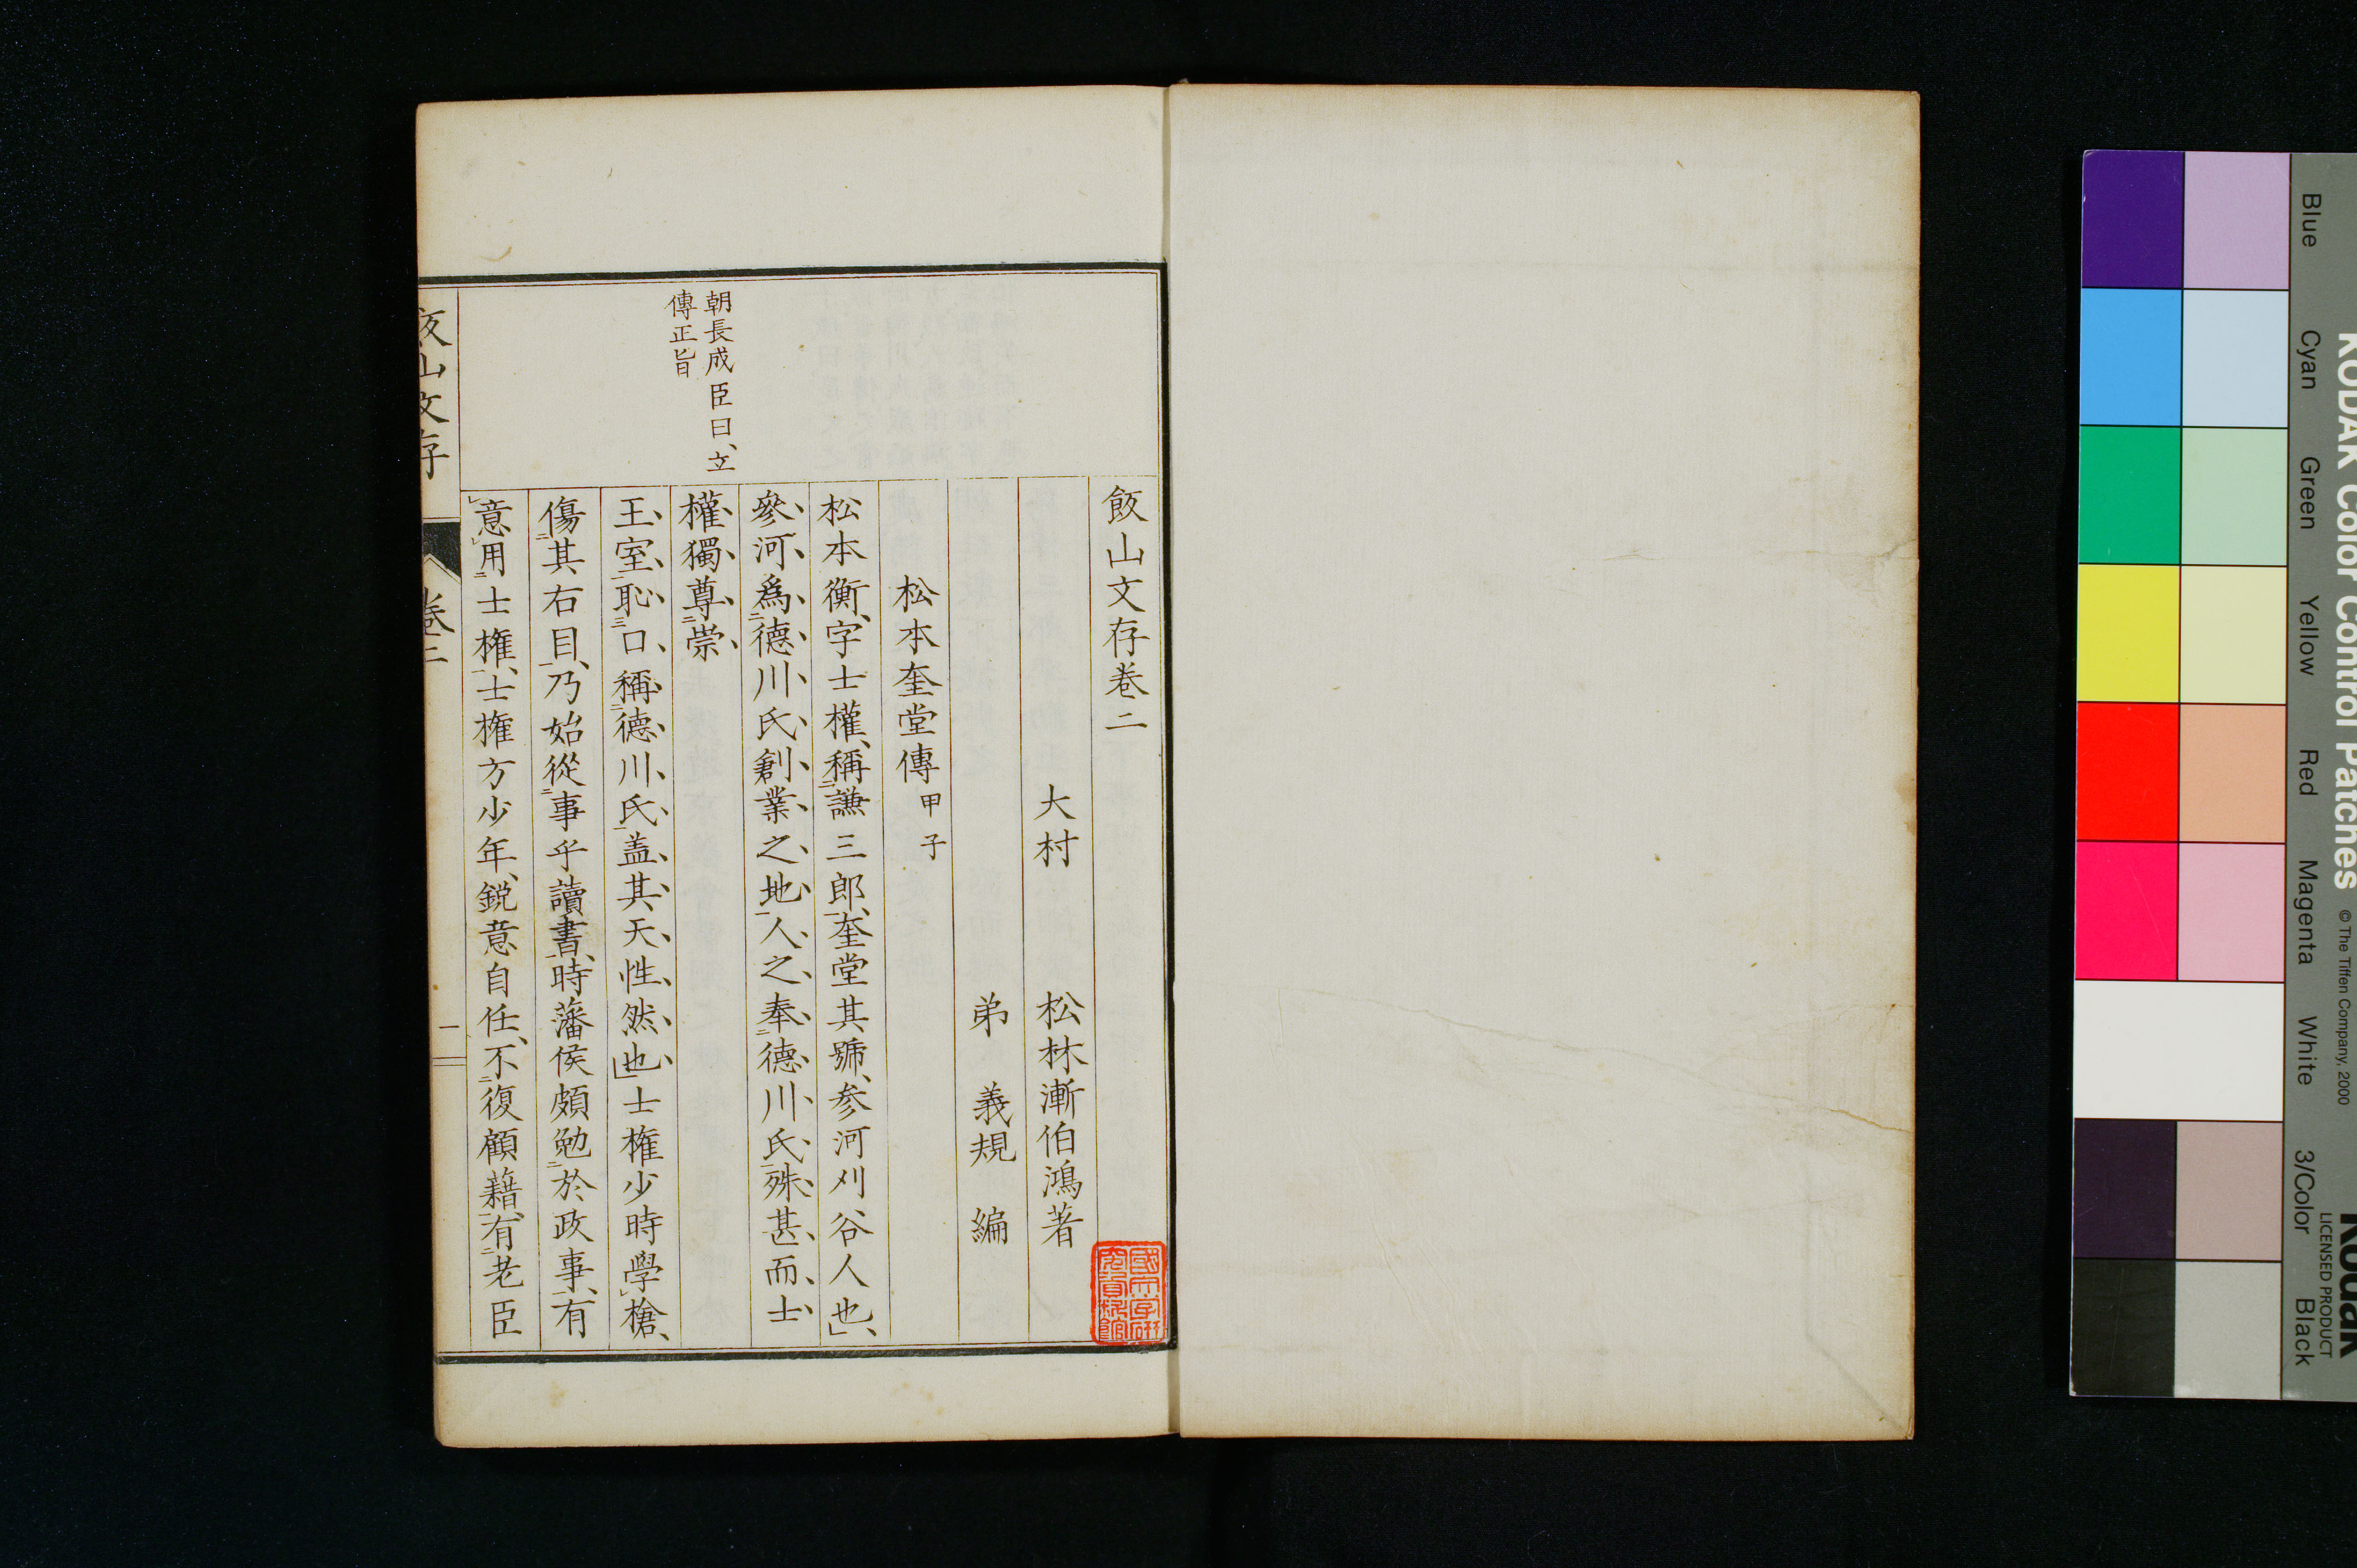 飯山文存卷二
大村 松林漸伯鴻著
弟 義規 編
松本奎堂傳 甲子
松本衡、字士權、稱謙三郎、奎堂其號、参河刈谷人也、
參河爲德川氏創業之地人之奉德川氏殊甚而士
權獨尊崇
王室恥口稱德川氏盖其天性然也士権少時學槍、
傷其右目、乃始從事乎讀書、時藩侯頗勉於政事、有
意用士權、士権方少年、銳意自任、不復顧藉、有老臣
朝長成臣曰、立
傳正旨
飯山文存
卷二
一
國文学研
究資料館
KODAK Color Control Patches
© The Tiffen Company, 2000
Kodak
LICENSED PRODUCT
Blue
Cyan
Green
Yellow
Red
Magenta
White
3/Color
Black